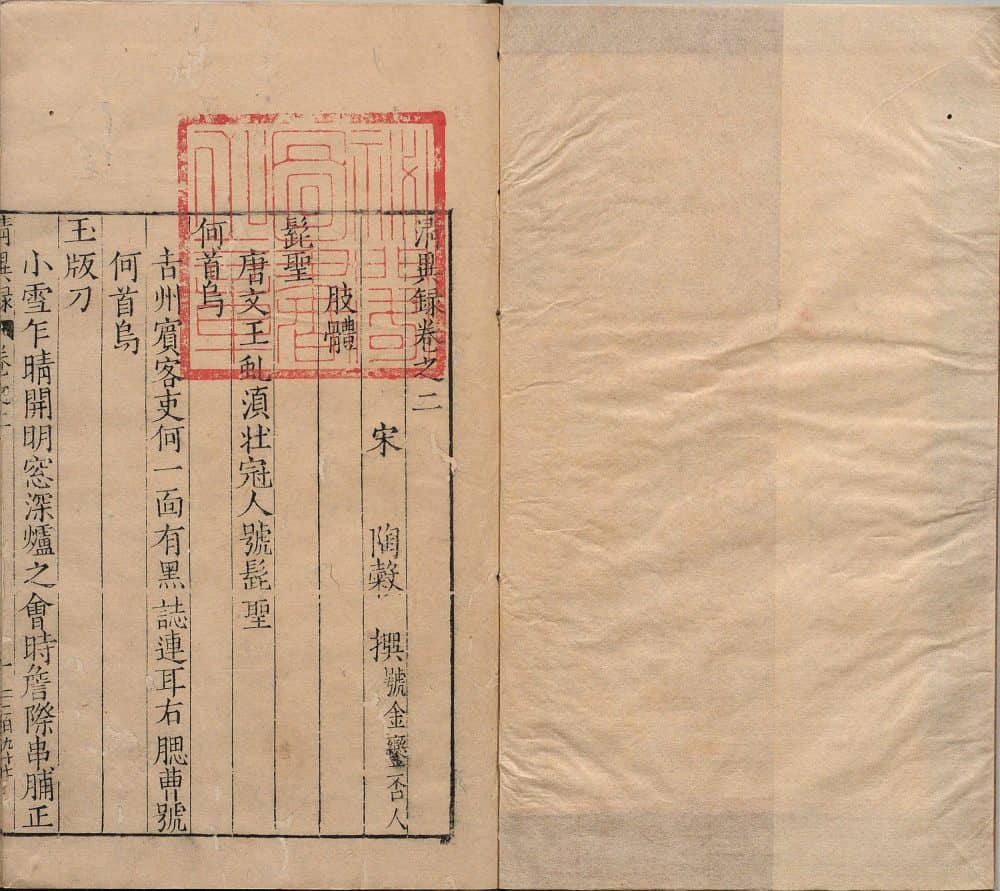 清異錄卷之二
宋 陶穀 撰號金鑾否人
肢體
髭聖
唐文王虬湏壯冠人號髭聖
何首烏
古州賓客吏何一面有黑誌連耳右腮曹號
何首烏
玉版刀
小雪乍晴開明窓深爐之會時詹際串脯正
清異録 卷之二